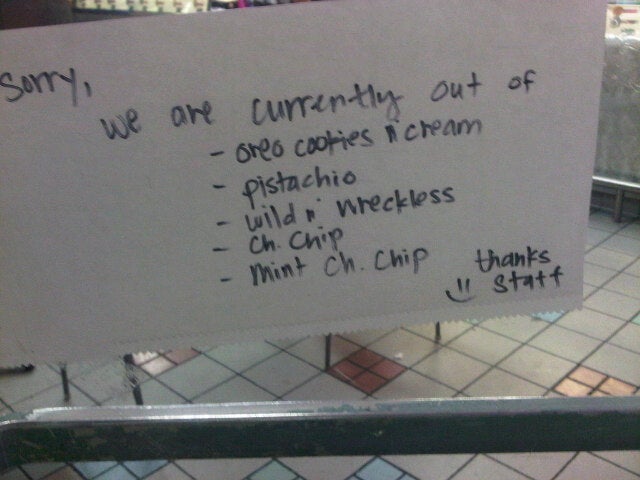 Sorry,
we are currently out of
- oreo cookies n' cream
- pistachio
- wild n' wreckless
- ch. chip
- mint ch. chip
thanks
staff